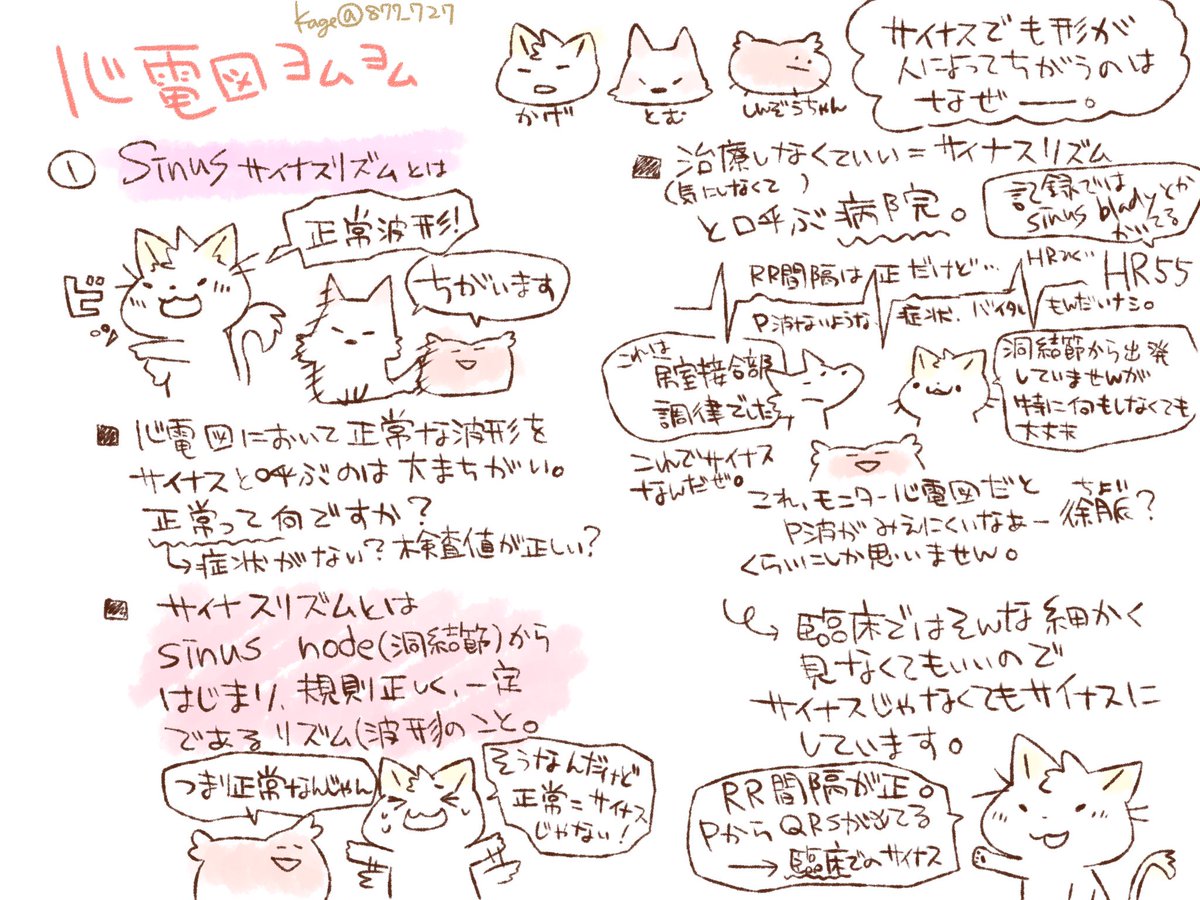 kage@877_727
心電図ヨムヨム
かげ
とむ
しんぞうちゃん
サイナスでも形が
人によってちがうのは
なぜ――。
① Sinus サイナスリズムとは
正常波形!
ビ
ちがいます
■ 心電図において正常な波形を
サイナスと呼ぶのは大まちがい。
正常って何ですか?
↳症状がない?検査値が正しい?
■ サイナスリズムとは
sinus node(洞結節)から
はじまり、規則正しく、一定
であるリズム(波形)のこと。
つまり正常なんじゃん
そうなんだけど
正常=サイナス
じゃない!
■ 治療しなくていい=サイナスリズム
(気にしなくて )
と呼ぶ病院。
記録では
sinus bladyとか
かいてる
RR間隔は正だけど…
HR55
P波ないような
症状、バイタル
もんだいナシ。
これは
房室接合部
調律でした
洞結節から出発
していませんが
特に何もしなくても
大丈夫
これでサイナス
なんだぜ。
これ、モニター心電図だと
P波がみえにくいなぁー
徐脈?
くらいにしか思いません。
臨床ではそんな細かく
見なくてもいいので
サイナスじゃなくてもサイナスに
しています。
RR間隔が正。
PからQRSが出てる
→臨床でのサイナス